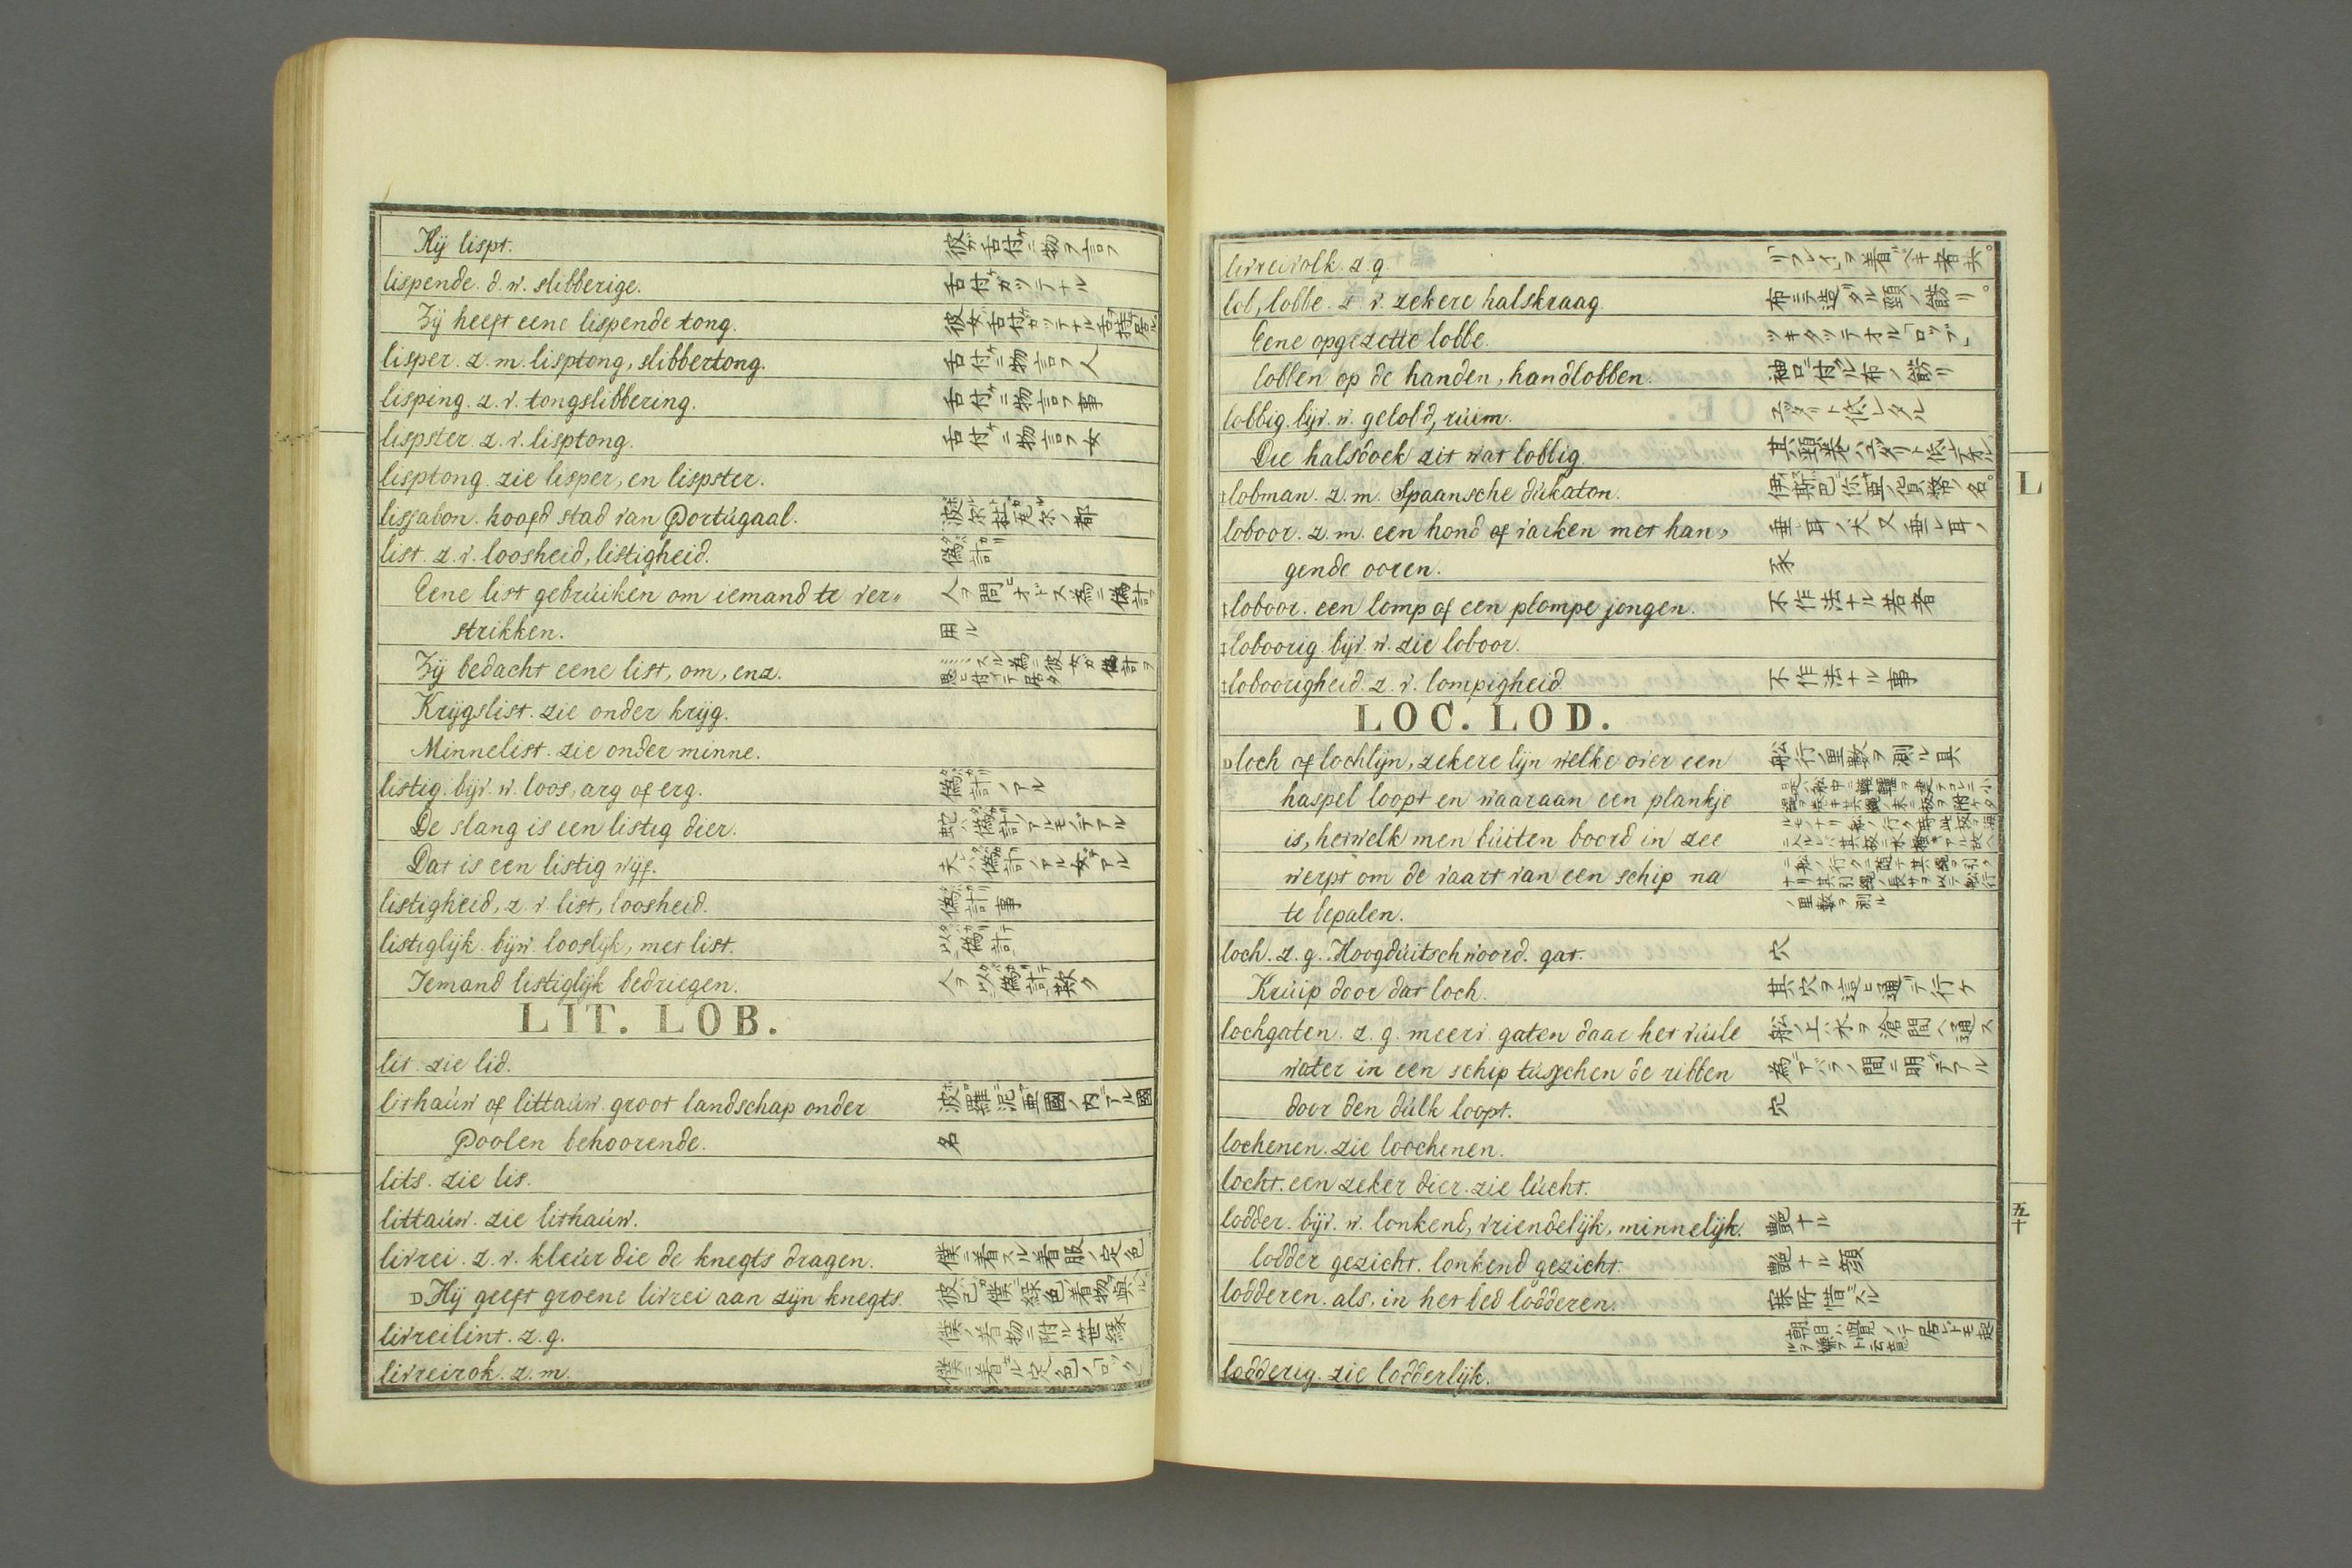 Hÿ lispt. 彼ガ舌付ケニ物ヲ言フ
lispende. d. w. slibberige. 舌付ガツテナル
Zÿ heeft eene lispende tong.
lisper. z. m. lisptong, slibbertong. 舌付ケニ物言フ人
lisping. z. v. tongslibbering. 舌付ケニ物言フ事
lispster. z. v. lisptong. 舌付ケニ物言フ女
lisptong. zie lisper, en lispster.
lissabon. hoofd stad van Portúgaal.
list. z. v. loosheid, listigheid. 偽計
Eene list gebrúiken om iemand te ver„
strikken. 用ル
Zÿ bedacht eene list, om, enz.
Krÿgslist. zie onder krÿg.
Minnelist. zie onder minne.
listig. bÿv. w. loos, arg of erg. 偽計ノアル
De slang is een listig dier. 蛇ハ偽計ノアルモノデアル
Dat is een listig wÿf. 夫ハ偽計ノアル女デアル
listigheid, z. v. list, loosheid. 偽計事
listiglÿk. bÿw. looslÿk, met list. 以偽計
Iemand listiglÿk bedriegen. 人ヲ以偽計欺ク
LIT. LOB.
lit. zie lid.
lithaúw of littaúw. groot landschap onder 波羅泥亜國ノ内デアル國
Poolen behoorende. 名
lits. zie lis.
littaúw. zie lithaúw.
livrei. z. v. kleúr die de knegts dragen. 僕ニ着スル着服ノ定色
DHÿ geeft groene livrei aan zÿn knegts.
livreilint. z. g. 僕ノ着物ニ附ル笹縁
livreirok. z. m. 僕ニ着スル定色ノロック
livreivolk. z. g.
lob, lobbe. z. v. zekere halskraag. 布ニテ造タル頸ノ餝リ。
Eene opgezette lobbe.
lobben op de handen, handlobben. 袖口ニ付ル布ノ餝リ
lobbig. bÿv. w. gelobd, rúim.
Die halsdoek zit wat lobbig.
‡lobman. z. m. Spaansche dúkaton.
loboor. z. m. een hond of varken met han„ 垂耳ノ犬又垂レ耳ノ
gende ooren. 豕
‡loboor. een lomp of een plompe jongen. 不作法ナル若者
‡loboorig. bÿv. w. zie loboor.
‡loboorigheid. z. v. lompigheid. 不作法ナル事
LOC. LOD.
Dloch of lochlÿn, zekere lÿn welke over een 舩行ノ里数ヲ測ル具
haspel loopt en waaraan een plankje
is, hetwelk men búiten boord in zee
werpt om de vaart van een schip na
te bepalen. ノ里數ヲ測ル
loch. z. g. Hoogdúitschwoord. gat. 穴
Krúip door dat loch. 其穴ヲ這ヒ通テ行ケ
lochgaten. z. g. meerv. gaten daar het vúile
water in een schip tússchen de ribben
door den dúlk loopt. 穴
lochenen. zie loochenen.
locht. een zeker dier. zie lúcht.
lodder. bÿv. w. lonkend, vriendelÿk, minnelÿk. 艶ナル
lodder gezicht. lonkend gezicht. 艶ナル顔
lodderen. als, in het bed lodderen.
lodderig. zie lodderlÿk.
L
五十